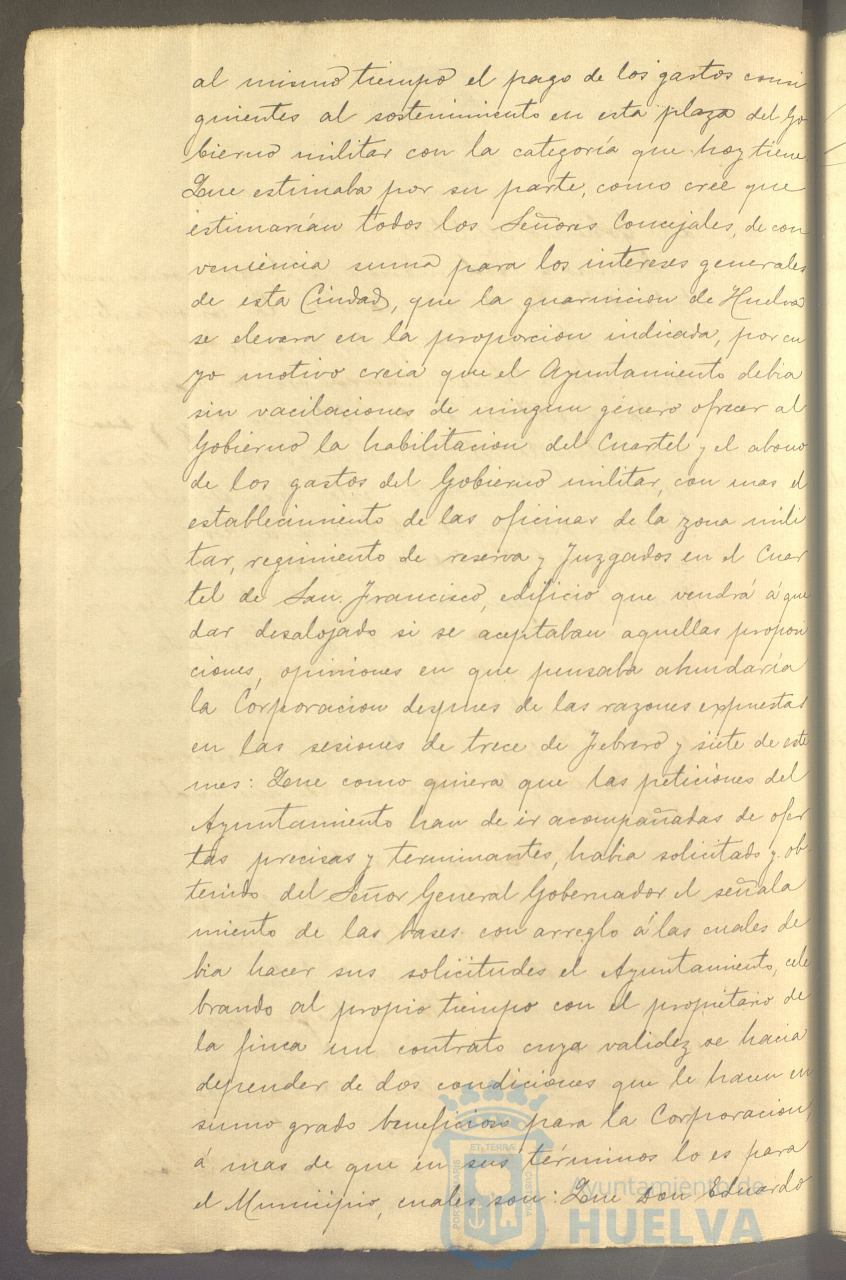 al mismo tiempo el pago de los gastos consi
guientes al sostenimiento en esta plaza del Go
bierno militar con la categoría que hoy tiene
Que estimaba por su parte, como cree que
estimarían todos los Señores Concejales, de con
veniencia suma para los intereses generales
de esta Ciudad, que la guarnicion de Huelva
se elevara en la proporcion indicada, por cu
yo motivo creia que el Ayuntamiento debia
sin vacilaciones de ningun género ofrecer al
Gobierno la habilitacion del Cuartel y el abono
de los gastos del Gobierno militar, con mas el
establecimiento de las oficinas de la zona mili
tar, regimiento de reserva y Juzgados en el Cuar
tel de San Francisco, edificio que vendrá á que
dar desalojado si se aceptaban aquellas proposi
ciones, opiniones en que pensaba abundaría
la Corporacion despues de las razones expuestas
en las sesiones de trece de Febrero y siete de este
mes: Que como quiera que las peticiones del
Ayuntamiento han de ir acompañadas de ofer
tas precisas y terminantes, habia solicitado y ob-
tenido del Señor General Gobernador el señala
miento de las bases con arreglo á las cuales de
bia hacer sus solicitudes el Ayuntamiento, cele
brando al propio tiempo con el propietario de
la finca un contrato cuya validez se hacia
depender de dos condiciones que le hacen en
sumo grado beneficioso para la Corporacion,
á mas de que en sus términos lo es para
el Municipio, cuales son: Que Don Eduardo
Ayuntamiento de
HUELVA